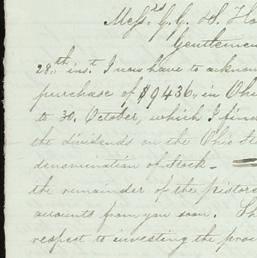 Mess.rs G. G. & S. Ho
Gentlemen
28.th ins.t I now have to acknow
purchase of $9436, in Ohio
to 30. October, which I find
the dividends on the Ohio St
denomination of Stock —
the remainder of the pistor
accounts from you soon. Sh
respect to investing the proc